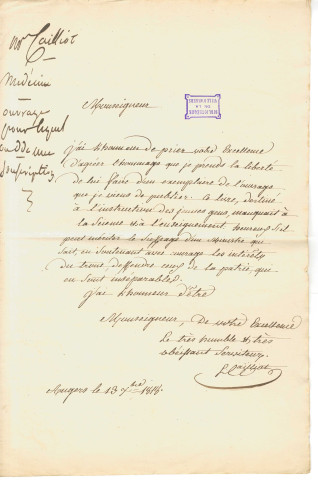 Mr Tailliot
Médecin
ouvrage
pour lequel
on dde une
Souscription
Monseigneur
j'ai l'honneur de prier votre Excellence
d'agréer l'hommage que je prends la liberté
de lui faire d'un exemplaire de l'ouvrage
que je viens de publier. Ce livre, destiné
à l'instruction des jeunes gens
la Science et à l'enseignement, heureux s'il
peut mériter le suffrage d'un Ministre qui
sait, en soutenant avec courage les intérêts
du trône, deffendre ceux de la patrie, qui
en sont inséparables.
j'ai l'honneur d'être
Monseigneur, De votre Excellence
Le très humble & très
obéissant Serviteur
Angers le 13 1818.